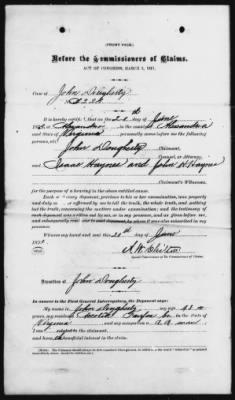 [FRONT PAGE.]
Before the Commissioners of Claims.
ACT OF CONGRESS, MARCH 3, 1871.
Case of John Dougherty
It is hereby certified, that on the 20th day of June
at Alexandria in the county of Alexandria
and State of Virginia personally came before me the following
persons, viz:
John Dougherty Claimant.
Counsel, or Attorney.
Isaac Haynes and John H Hayne
Claimant's Witnesses,
for the purpose of a hearing in the above entitled cause.
Each and every deponent, previous to his or her examination, was properly
and duly sworn or affirmed by me to tell the truth, the whole truth, and nothing
but the truth, concerning the matters under examination; and the testimony of
each deponent was written out by me, or in my presence, and as given before me,
and subsequently read over to each deponent by whom it was also subscribed in my
presence.
Witness my hand and seal this 20th day of June
187
Special Commissioner of the Commissioners of Claims.
Deposition of John Dougherty
In answer to the First General Interrogatory, the Deponent says:
My name is John Dougherty, my age
years, my residence Fairfax Co., in the State of
Virginia, and my occupation
I am the claimant, and
have beneficial interest in the claim.